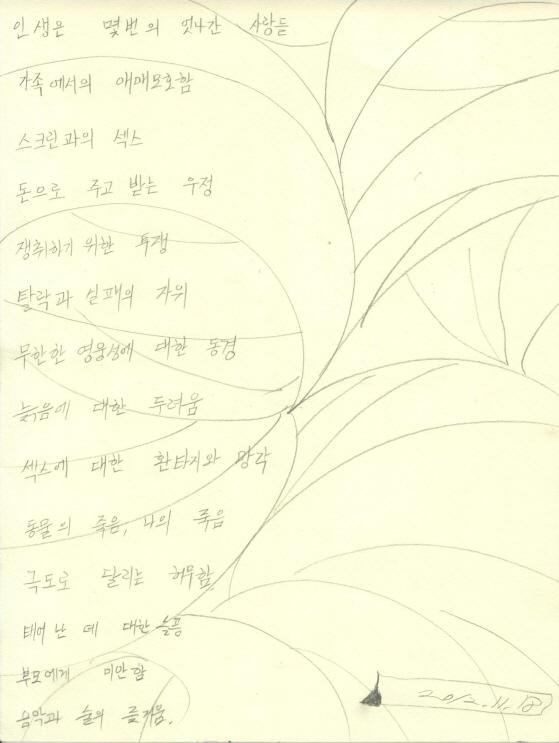 인생은 몇번의 엇나간 사랑듣
가족에서의 애매모호함
스크린과의 섹스
돈으로 주고 받는 우정
쟁취하기 위한 투쟁
탈락과 실패의 자위
무한한 영웅성에 대한 동경
늙음에 대한 두려움
섹스에 대한 환타지와 망각
동물의 죽음, 나의 죽음
극도로 달리는 허무함.
태어 난 데 대한 슬픔
부모에게 미안함
음악과 술의 즐거움.
2012.11.18